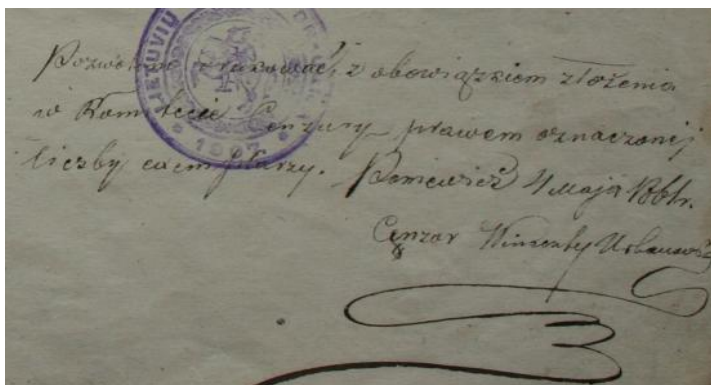 LIETUVIU
1907
Pozwolono drukować, z obowiązkiem złożenia
w Komitecie Cenzury prawem oznaczonej
liczby exemplarzy. Poniewież 4 Maja
Cenzor Wincenty Urbanowicz